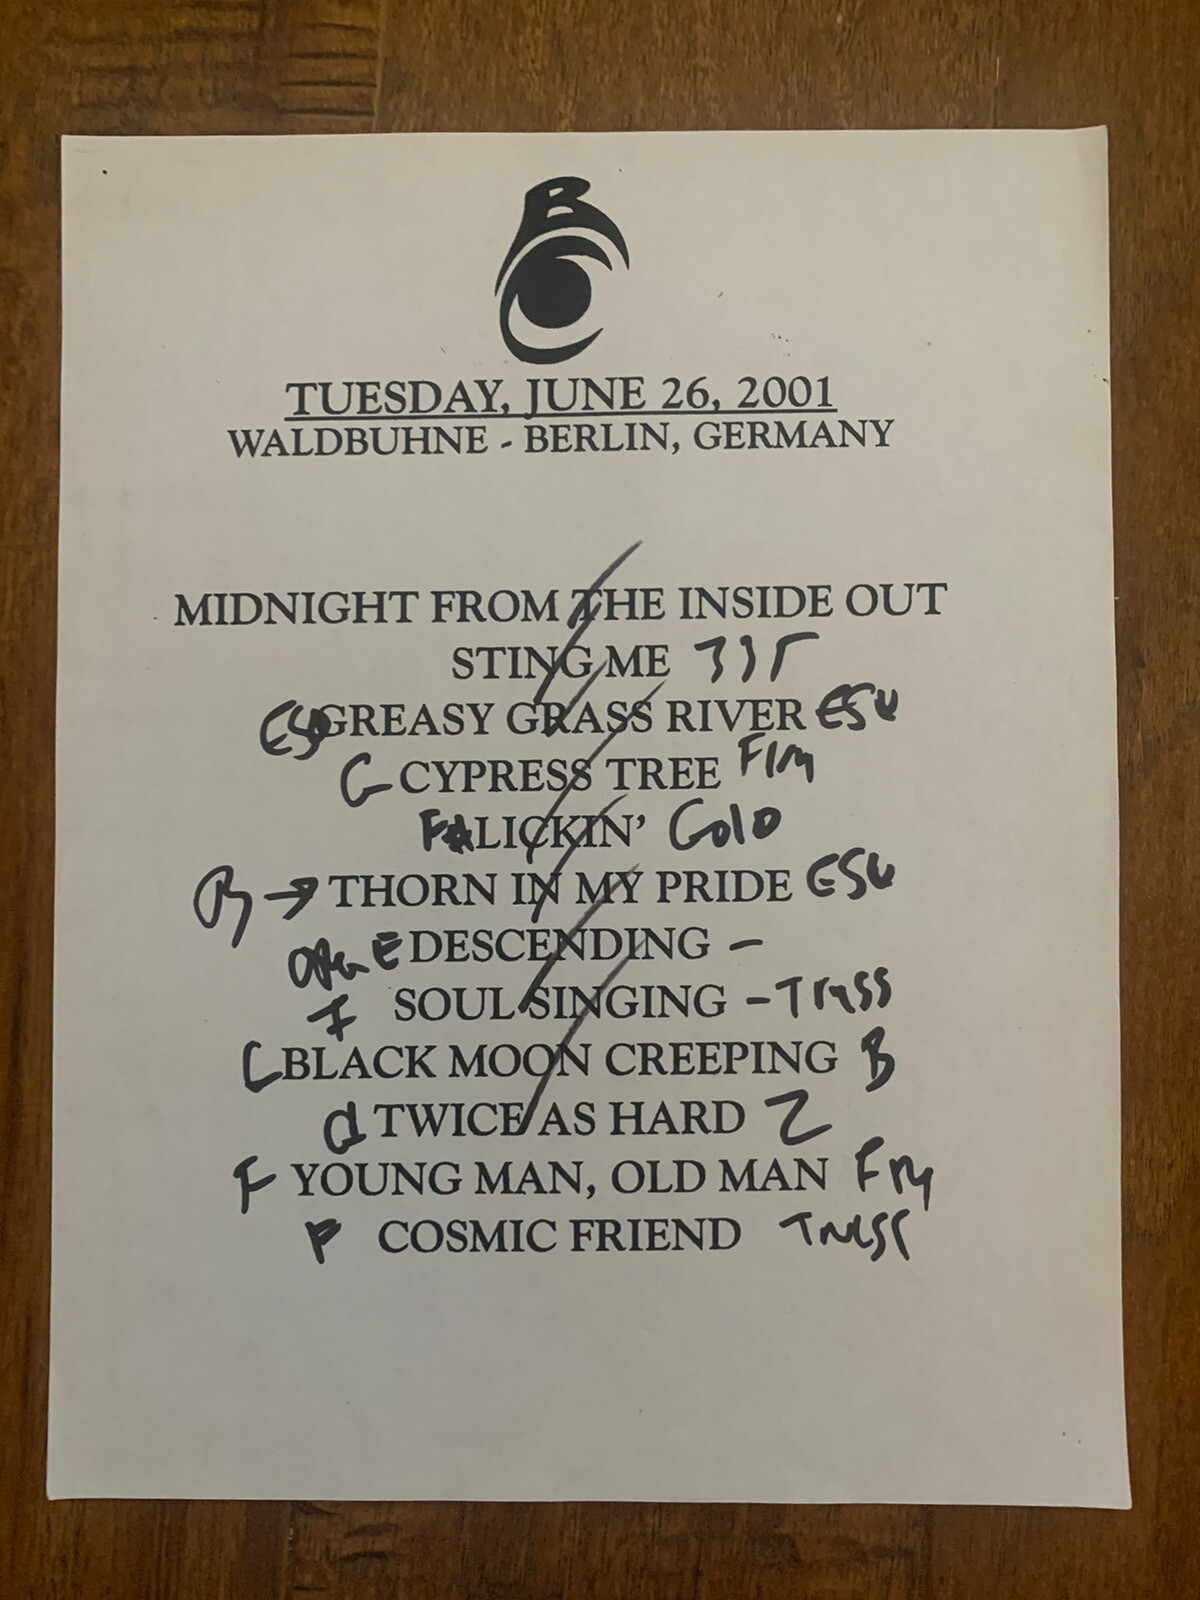 B
TUESDAY, JUNE 26, 2001
WALDBUHNE - BERLIN, GERMANY
MIDNIGHT FROM THE INSIDE OUT
STING ME 335
GREASY GRASS RIVER ESQ
G CYPRESS TREE
F# LICKIN' Gold
→ THORN IN MY PRIDE ESQ
open E DESCENDING -
SOUL SINGING - Truss
C BLACK MOON CREEPING B
d TWICE AS HARD Z
F YOUNG MAN, OLD MAN
F COSMIC FRIEND Truss